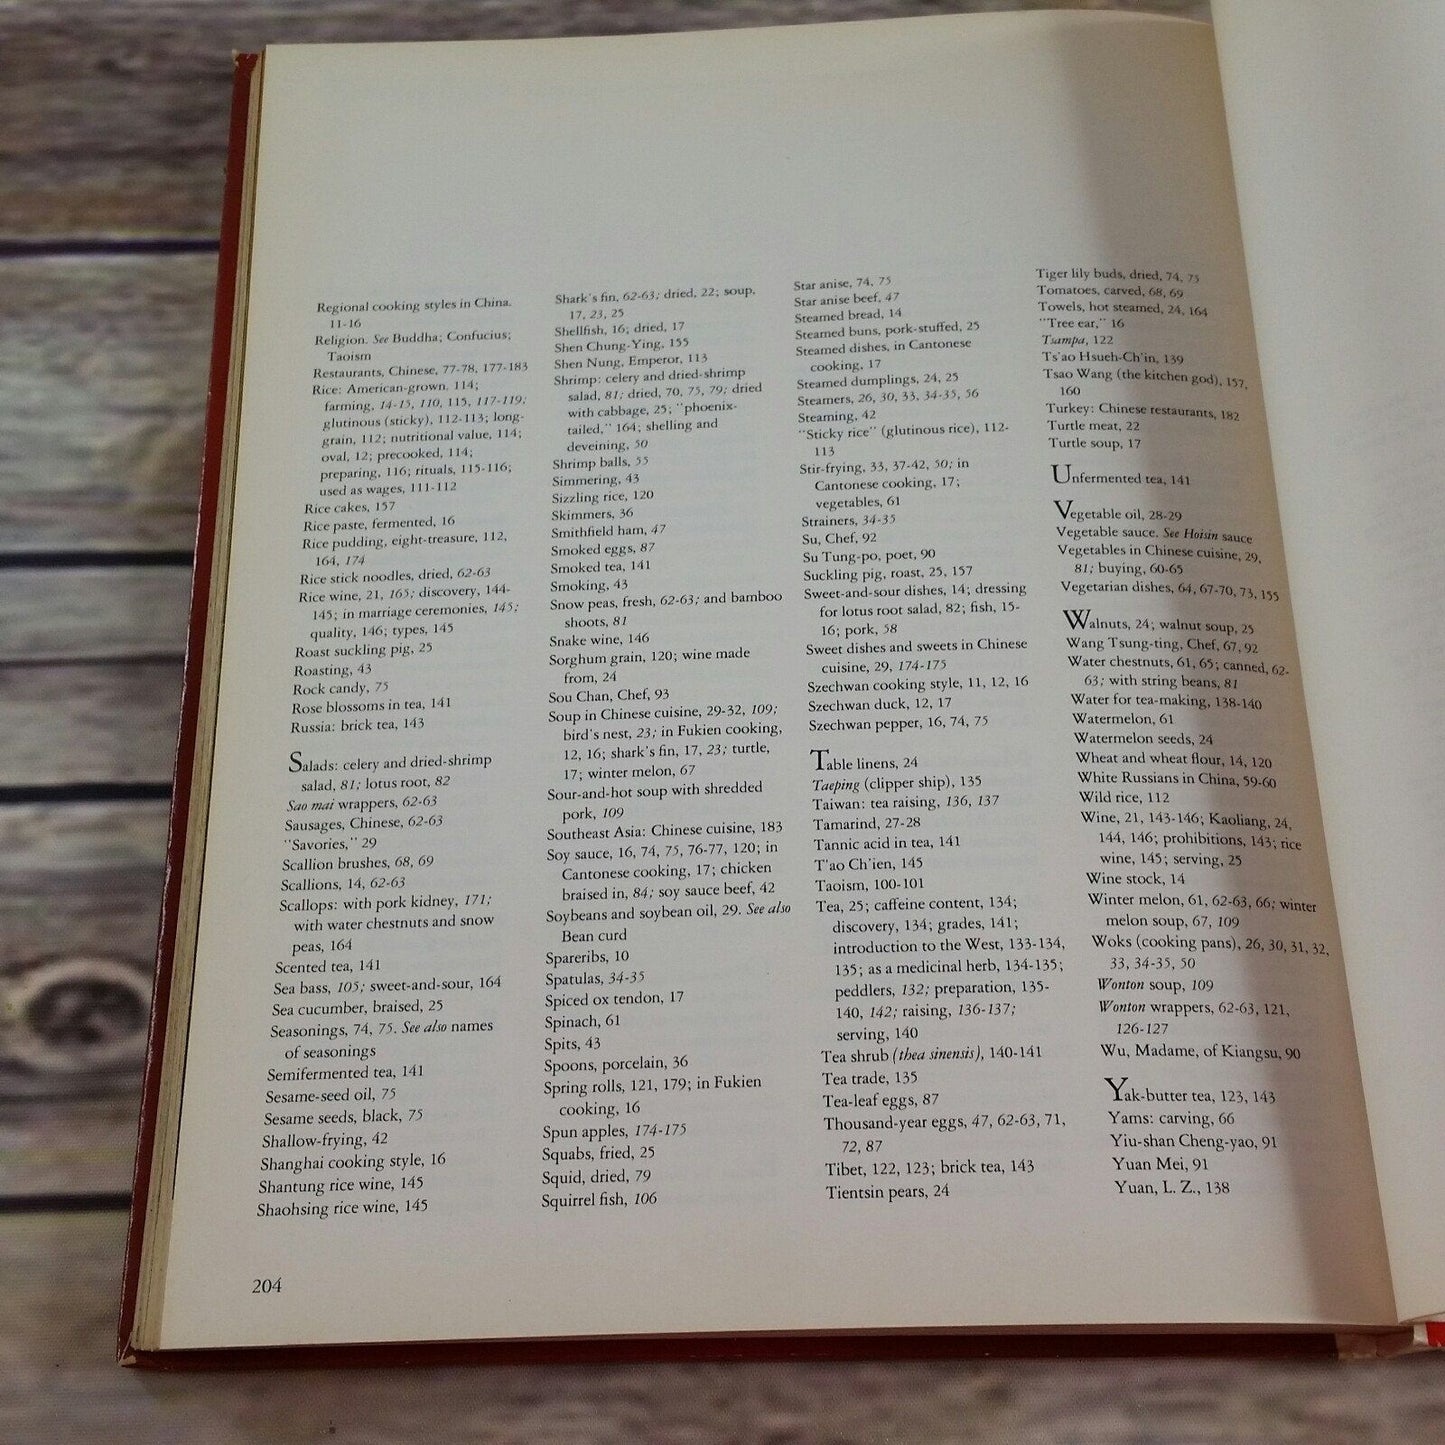 Regional cooking styles in China.
11-16
Religion. See Buddha; Confucius;
Taoism
Restaurants, Chinese, 77-78, 177-183
Rice: American-grown. 114;
farming, 14-15, 110, 115, 117-119;
glutinous (sticky), 112-113; long-
grain, 112; nutritional value, 114;
oval, 12; precooked, 114;
preparing, 116; rituals, 115-116;
used as wages, 111-112
Rice cakes, 157
Rice paste, fermented, 16
Rice pudding, eight-treasure, 112,
164, 174
Rice stick noodles, dried, 62-63
Rice wine, 21, 165; discovery, 144-
145; in marriage ceremonies, 145;
quality, 146; types, 145
Roast suckling pig, 25
Roasting, 43
Rock candy, 75
Rose blossoms in tea, 141
Russia: brick tea, 143
Salads: celery and dried-shrimp
salad, 81; lotus root, 82
Sao mai wrappers, 62-63
Sausages, Chinese, 62-63
"Savories," 29
Scallion brushes, 68, 69
Scallions, 14, 62-63
Scallops: with pork kidney, 171;
with water chestnuts and snow
peas, 164
Scented tea, 141
Sea bass, 105; sweet-and-sour, 164
Sea cucumber, braised, 25
Seasonings, 74, 75. See also names
of seasonings
Semifermented tea, 141
Sesame-seed oil, 75
Sesame seeds, black, 75
Shallow-frying, 42
Shanghai cooking style, 16
Shantung rice wine, 145
Shaohsing rice wine, 145
Shark's fin, 62-63; dried, 22; soup,
17, 23, 25
Shellfish, 16; dried, 17
Shen Chung-Ying, 155
Shen Nung, Emperor, 113
Shrimp: celery and dried-shrimp
salad, 81; dried, 70, 75, 79; dried
with cabbage, 25; "phoenix-
tailed," 164; shelling and
deveining, 50
Shrimp balls, 55
Simmering, 43
Sizzling rice, 120
Skimmers, 36
Smithfield ham, 47
Smoked eggs, 87
Smoked tea, 141
Smoking, 43
Snow peas, fresh, 62-63; and bamboo
shoots, 81
Snake wine, 146
Sorghum grain, 120; wine made
from, 24
Sou Chan, Chef, 93
Soup in Chinese cuisine, 29-32, 109;
bird's nest, 23; in Fukien cooking,
12, 16; shark's fin, 17, 23; turtle,
17; winter melon, 67
Sour-and-hot soup with shredded
pork, 109
Southeast Asia: Chinese cuisine, 183
Soy sauce, 16, 74, 75, 76-77, 120; in
Cantonese cooking, 17; chicken
braised in, 84; soy sauce beef, 42
Soybeans and soybean oil, 29. See also
Bean curd
Spareribs, 10
Spatulas, 34-35
Spiced ox tendon, 17
Spinach, 61
Spits, 43
Spoons, porcelain, 36
Spring rolls, 121, 179; in Fukien
cooking, 16
Spun apples, 174-175
Squabs, fried, 25
Squid, dried, 79
Squirrel fish, 106
Star anise, 74, 75
Star anise beef, 47
Steamed bread, 14
Steamed buns, pork-stuffed, 25
Steamed dishes, in Cantonese
cooking, 17
Steamed dumplings, 24, 25
Steamers, 26, 30, 33, 34-35, 56
Steaming, 42
"Sticky rice" (glutinous rice), 112-
113
Stir-frying, 33, 37-42, 50; in
Cantonese cooking, 17;
vegetables, 61
Strainers, 34-35
Su, Chef, 92
Su Tung-po, poet, 90
Suckling pig, roast, 25, 157
Sweet-and-sour dishes, 14; dressing
for lotus root salad, 82; fish, 15-
16; pork, 58
Sweet dishes and sweets in Chinese
cuisine, 29, 174-175
Szechwan cooking style, 11, 12, 16
Szechwan duck, 12, 17
Szechwan pepper, 16, 74, 75
Table linens, 24
Taeping (clipper ship), 135
Taiwan: tea raising, 136, 137
Tamarind, 27-28
Tannic acid in tea, 141
T'ao Ch'ien, 145
Taoism, 100-101
Tea, 25; caffeine content, 134;
discovery, 134; grades, 141;
introduction to the West, 133-134,
135; as a medicinal herb, 134-135;
peddlers, 132; preparation, 135-
140, 142; raising, 136-137;
serving, 140
Tea shrub (thea sinensis), 140-141
Tea trade, 135
Tea-leaf eggs, 87
Thousand-year eggs, 47, 62-63, 71,
72, 87
Tibet, 122, 123; brick tea, 143
Tientsin pears, 24
Tiger lily buds, dried, 74, 75
Tomatoes, carved, 68, 69
Towels, hot steamed, 24, 164
"Tree ear," 16
Tsampa, 122
Ts'ao Hsueh-Ch'in, 139
Tsao Wang (the kitchen god), 157,
160
Turkey: Chinese restaurants, 182
Turtle meat, 22
Turtle soup, 17
Unfermented tea, 141
Vegetable oil, 28-29
Vegetable sauce. See Hoisin sauce
Vegetables in Chinese cuisine, 29,
81; buying, 60-65
Vegetarian dishes, 64, 67-70, 73, 155
Walnuts, 24; walnut soup, 25
Wang Tsung-ting, Chef, 67, 92
Water chestnuts, 61, 65; canned, 62-
63; with string beans, 81
Water for tea-making, 138-140
Watermelon, 61
Watermelon seeds, 24
Wheat and wheat flour, 14, 120
White Russians in China, 59-60
Wild rice, 112
Wine, 21, 143-146; Kaoliang, 24,
144, 146; prohibitions, 143; rice
wine, 145; serving, 25
Wine stock, 14
Winter melon, 61, 62-63, 66; winter
melon soup, 67, 109
Woks (cooking pans), 26, 30, 31, 32,
33, 34-35, 50
Wonton soup, 109
Wonton wrappers, 62-63, 121,
126-127
Wu, Madame, of Kiangsu, 90
Yak-butter tea, 123, 143
Yams: carving, 66
Yiu-shan Cheng-yao, 91
Yuan Mei, 91
Yuan, L. Z., 138
204